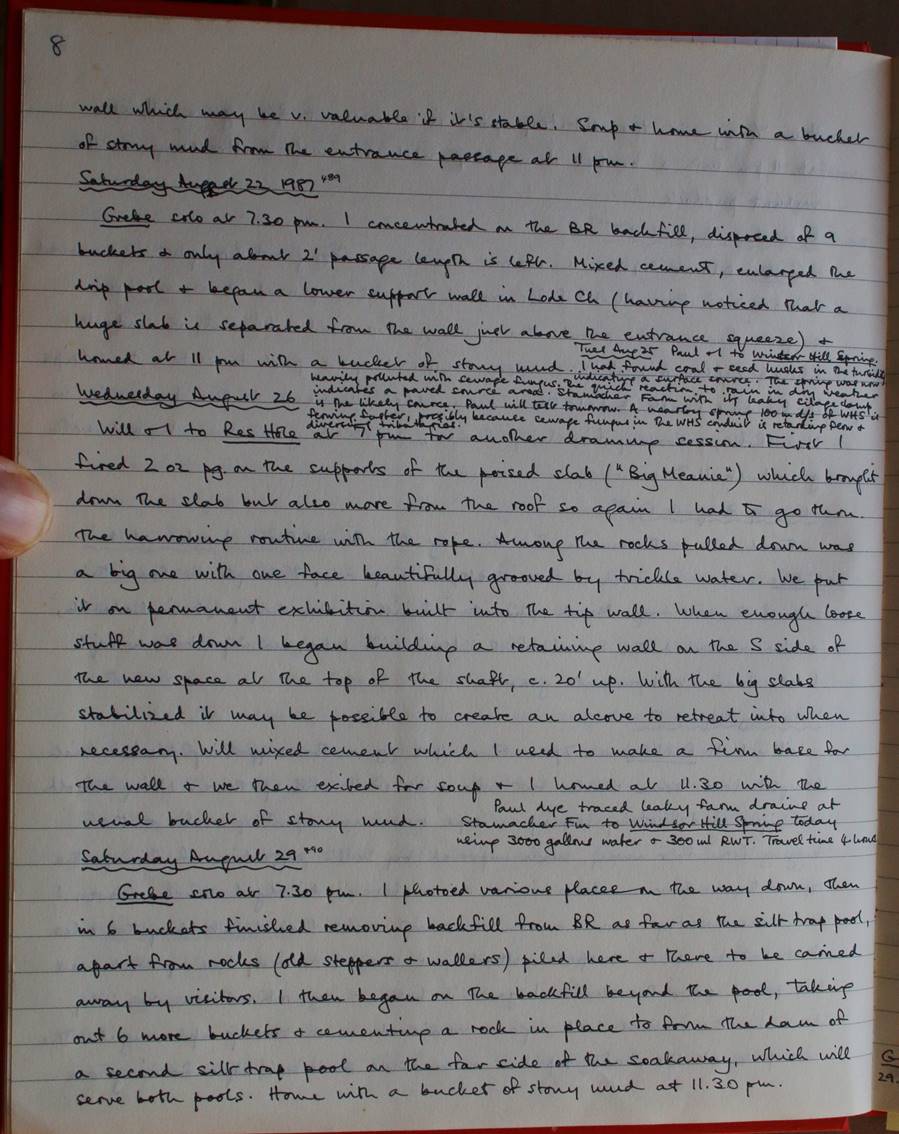 8
wall which may be v. valuable if it's stable. Soup + home with a bucket
of stony mud from the entrance passage at 11 pm.
Saturday August 22 1987 489
Grebe solo at 7.30 pm. I concentrated on the BR backfill, disposed of 9
buckets & only about 2' passage length is left. Mixed cement, enlarged the
drip pool & began a lower support wall in Lode Ch (having noticed that a
huge slab is separated from the wall just above the entrance squeeze) &
homed at 11 pm with a bucket of stony mud.
Tues Aug 25 Paul & I to Windsor Hill Spring.
I had found coal & seed husks in the turbidity
indicating a surface source. The spring was now
heavily polluted with sewage fungus, the quick reaction to rain in dry weather
indicates a ponded source area. Stamacher Farm with its leaky silage clamp
is the likely source. Paul will test tomorrow. A nearby spring 100 m d/s of WHS is
flowing faster, possibly because sewage fungus in the WHS conduit is retarding flow &
diverting tributaries.
Wednesday August 26
Will & I to Res Hole at 7 pm for another draming session. First I
fired 2 oz pg. on the supports of the poised slab ("Big Meanie") which brought
down the slab but also more from the roof so again I had to go thro.
the harrowing routine with the rope. Among the rocks pulled down was
a big one with one face beautifully grooved by trickle water. We put
it on permanent exhibition built into the tip wall. When enough loose
stuff was down I began building a retaining wall on the S side of
the new space at the top of the shaft, c. 20' up. With the big slabs
stabilized it may be possible to create an alcove to retreat into when
necessary. Will mixed cement which I used to make a firm base for
the wall & we then exited for soup & I homed at 11.30 with the
usual bucket of stony mud.
Paul dye traced leaky farm drains at
Stamacher Fm to Windsor Hill Spring today
using 3000 gallons water & 300 ml RWT. Travel time 4 hours
Saturday August 29 490
Grebe solo at 7.30 pm. I photoed various places on the way down, then
in 6 buckets finished removing backfill from BR as far as the silt trap pool,
apart from rocks (old steppers & wallers) piled here & there to be carried
away by visitors. I then began on the backfill beyond the pool, taking
out 6 more buckets & cementing a rock in place to form the dam of
a second silt trap pool on the far side of the soakaway, which will
serve both pools. Home with a bucket of stony mud at 11.30 pm.
G
29.